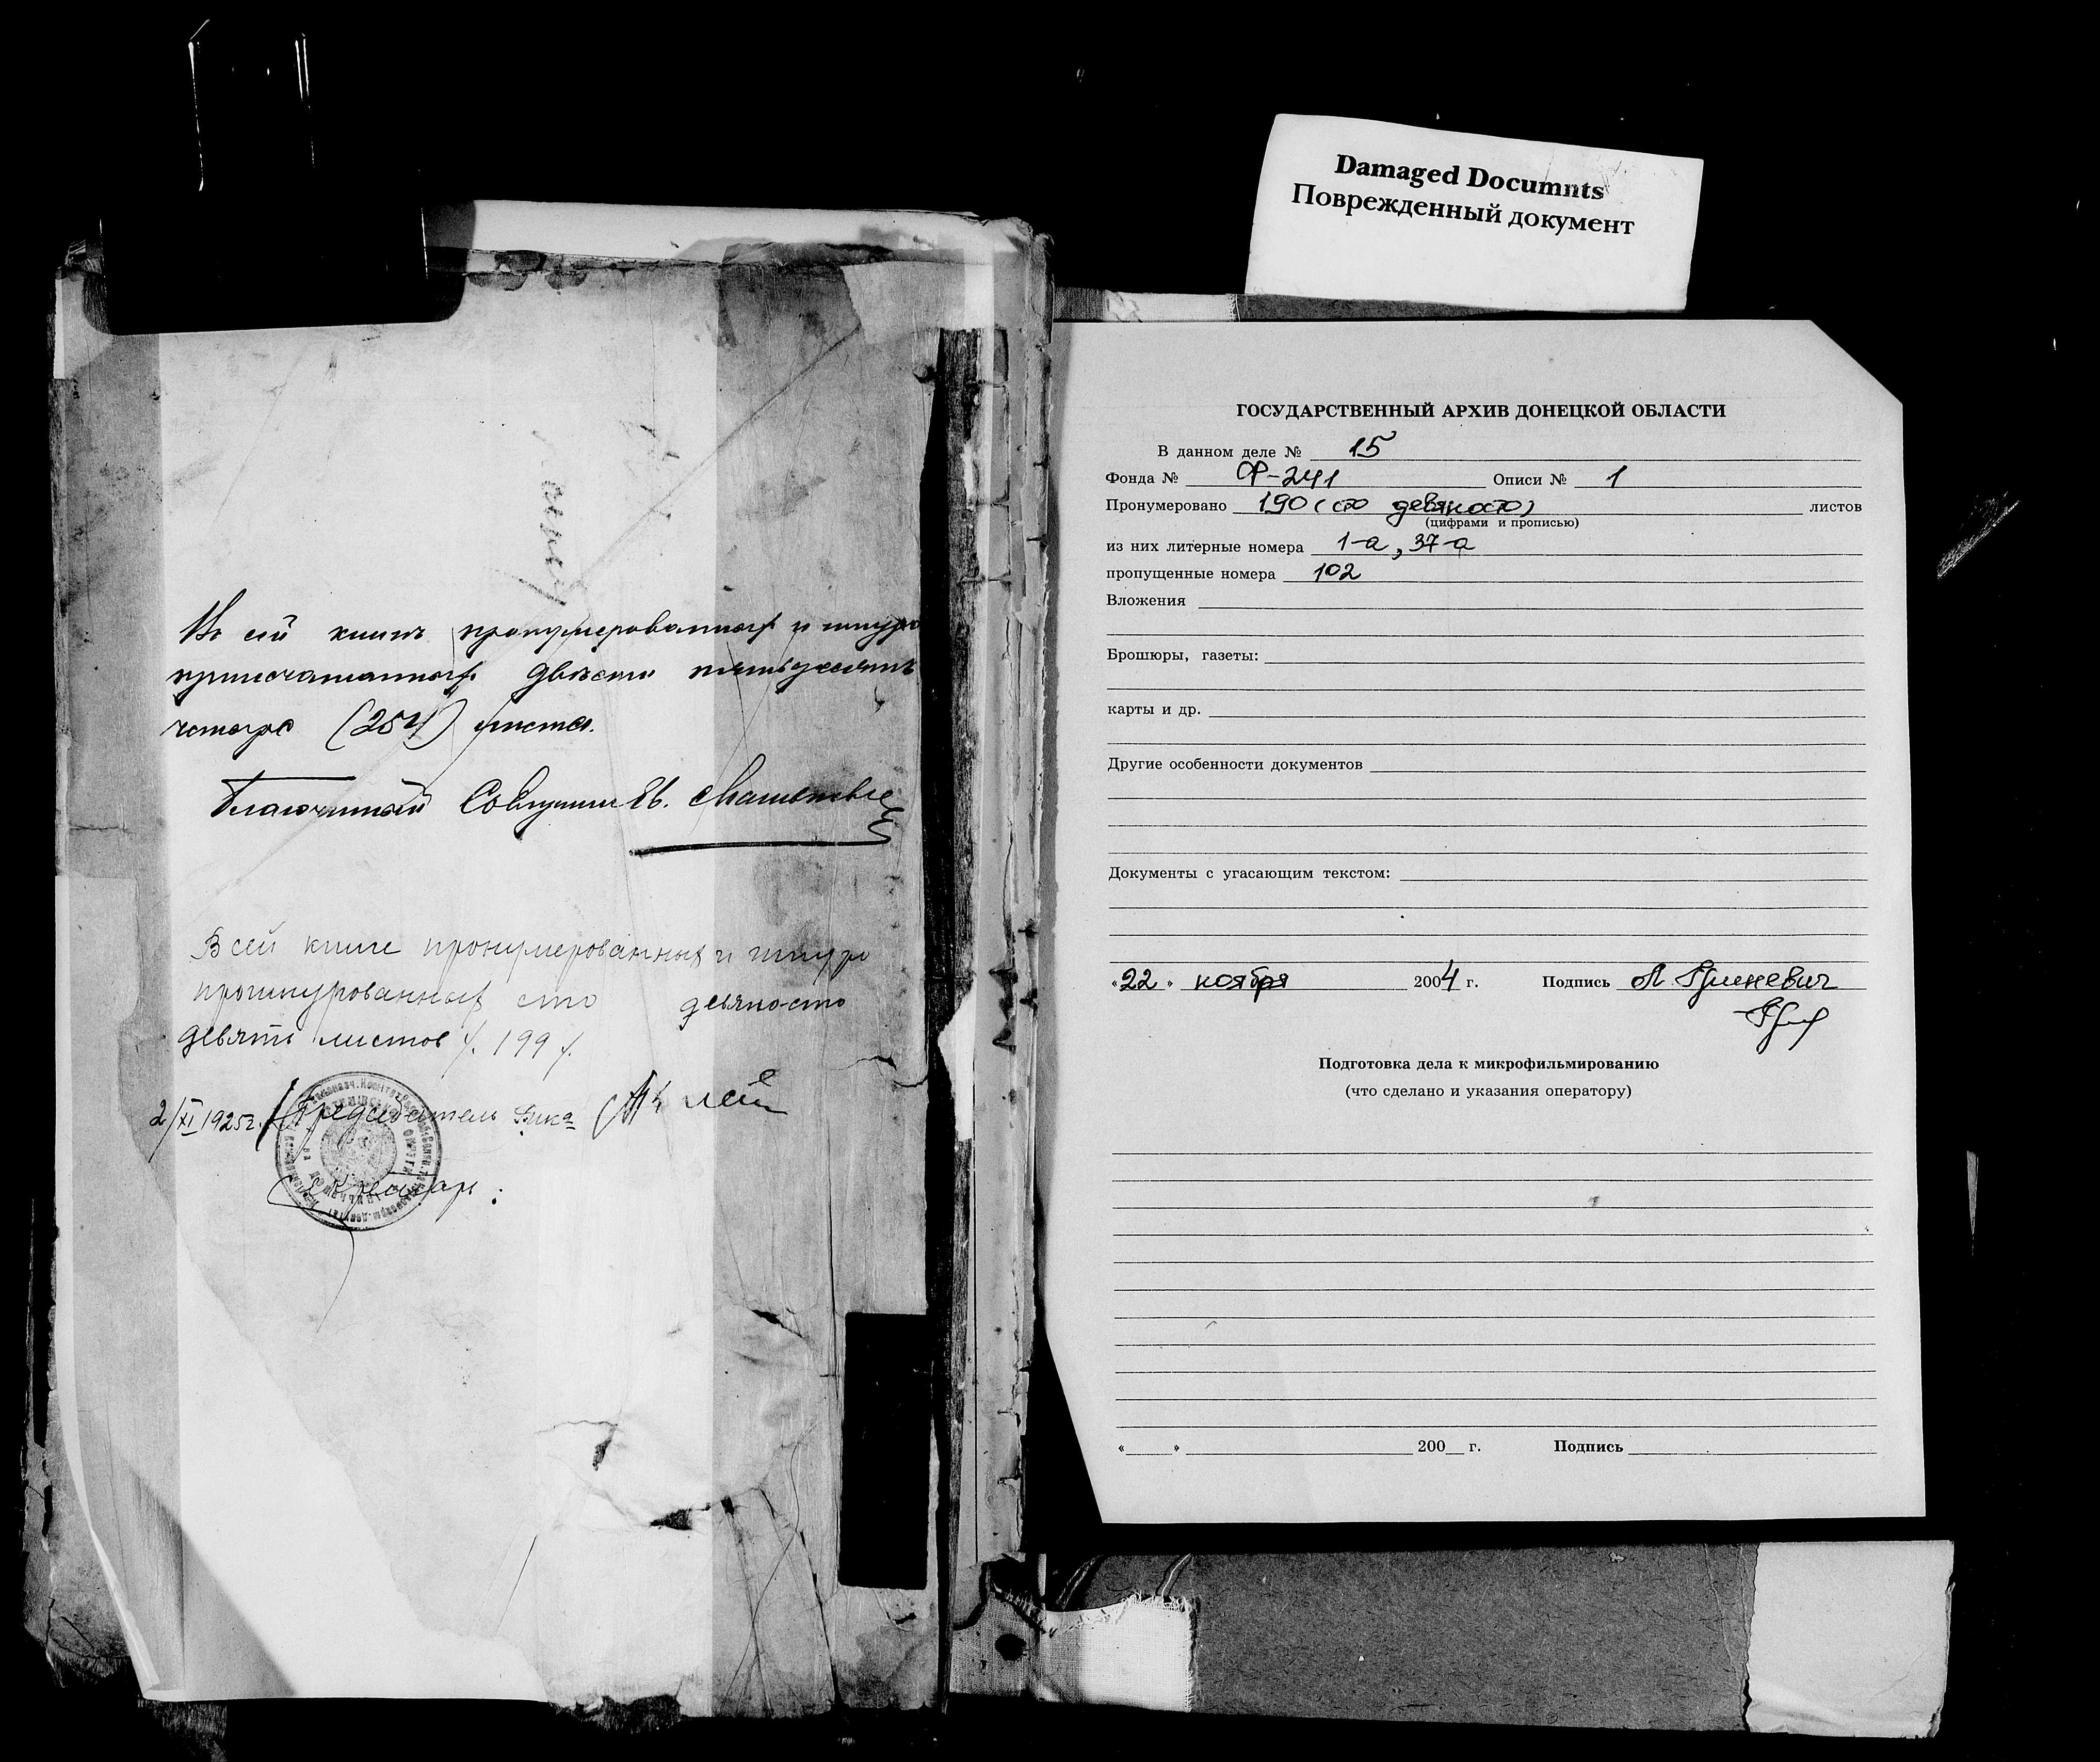 Damaged Documnts
Поврежденный документ
Въ сей книгѣ пронумерованныхъ и шнуро
припечатанныхъ двѣсти пятьдесятъ
четыре (254) листа.
Благочинный Ев.
В сей книге пронумерованных и шнуро
прошнурованных сто девяносто
девять листов /. 199 /.
2/XI 1925г. Председатель Вика
Секретарь:
ГОСУДАРСТВЕННЫЙ АРХИВ ДОНЕЦКОЙ ОБЛАСТИ
В данном деле № 15
Фонда № ФР-241 Описи № 1
Пронумеровано 190 (сто девяносто) листов
(цифрами и прописью)
из них литерные номера 1-а, 37-а
пропущенные номера 102
Вложения
Брошюры, газеты:
карты и др.
Другие особенности документов
Документы с угасающим текстом:
«22» ноября 2004 г. Подпись Л. Гриневич
Подготовка дела к микрофильмированию
(что сделано и указания оператору)
« » 200 г. Подпись